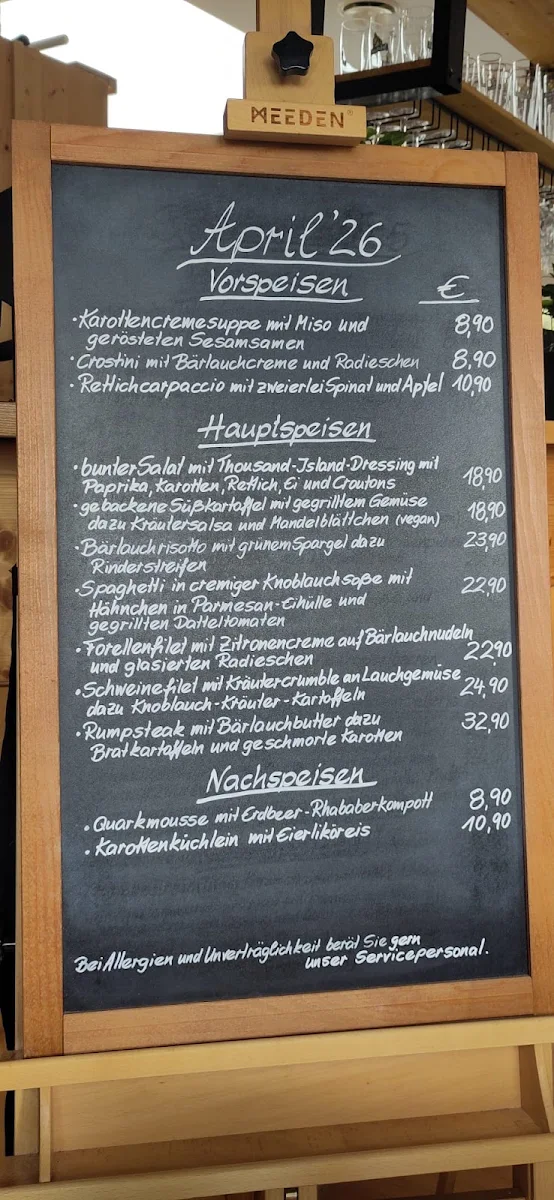 MEEDEN
April '26
Vorspeisen €
· Karottencremesuppe mit Miso und 8,90
gerösteten Sesamsamen
· Crostini mit Bärlauchcreme und Radieschen 8,90
· Rettichcarpaccio mit zweierlei Spinat und Apfel 10,90
Hauptspeisen
· bunter Salat mit Thousand-Island-Dressing mit
Paprika, Karotten, Rettich, Ei und Croutons 18,90
· gebackene Süßkartoffel mit gegrilltem Gemüse 18,90
dazu Kräutersalsa und Mandelblättchen (vegan)
· Bärlauchrisotto mit grünem Spargel dazu 23,90
Rinderstreifen
· Spaghetti in cremiger Knoblauchsoße mit 22,90
Hähnchen in Parmesan-Eihülle und
gegrillten Datteltomaten
· Forellenfilet mit Zitronencreme auf Bärlauchnudeln
und glasierten Radieschen 22,90
· Schweinefilet mit Kräutercrumble an Lauchgemüse 24,90
dazu Knoblauch-Kräuter-Kartoffeln
· Rumpsteak mit Bärlauchbutter dazu 32,90
Bratkartoffeln und geschmorte Karotten
Nachspeisen
· Quarkmousse mit Erdbeer-Rhababerkompott 8,90
· Karottenküchlein mit Eierliköreis 10,90
Bei Allergien und Unverträglichkeit berät Sie gern
unser Servicepersonal.